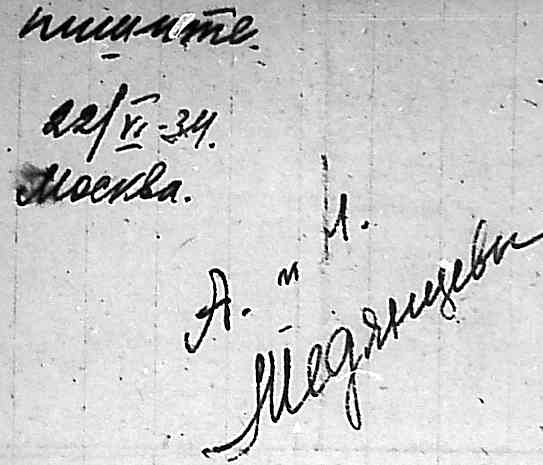 пишите.
22/VI-34.
Москва.
А. и И.
Медянцевы